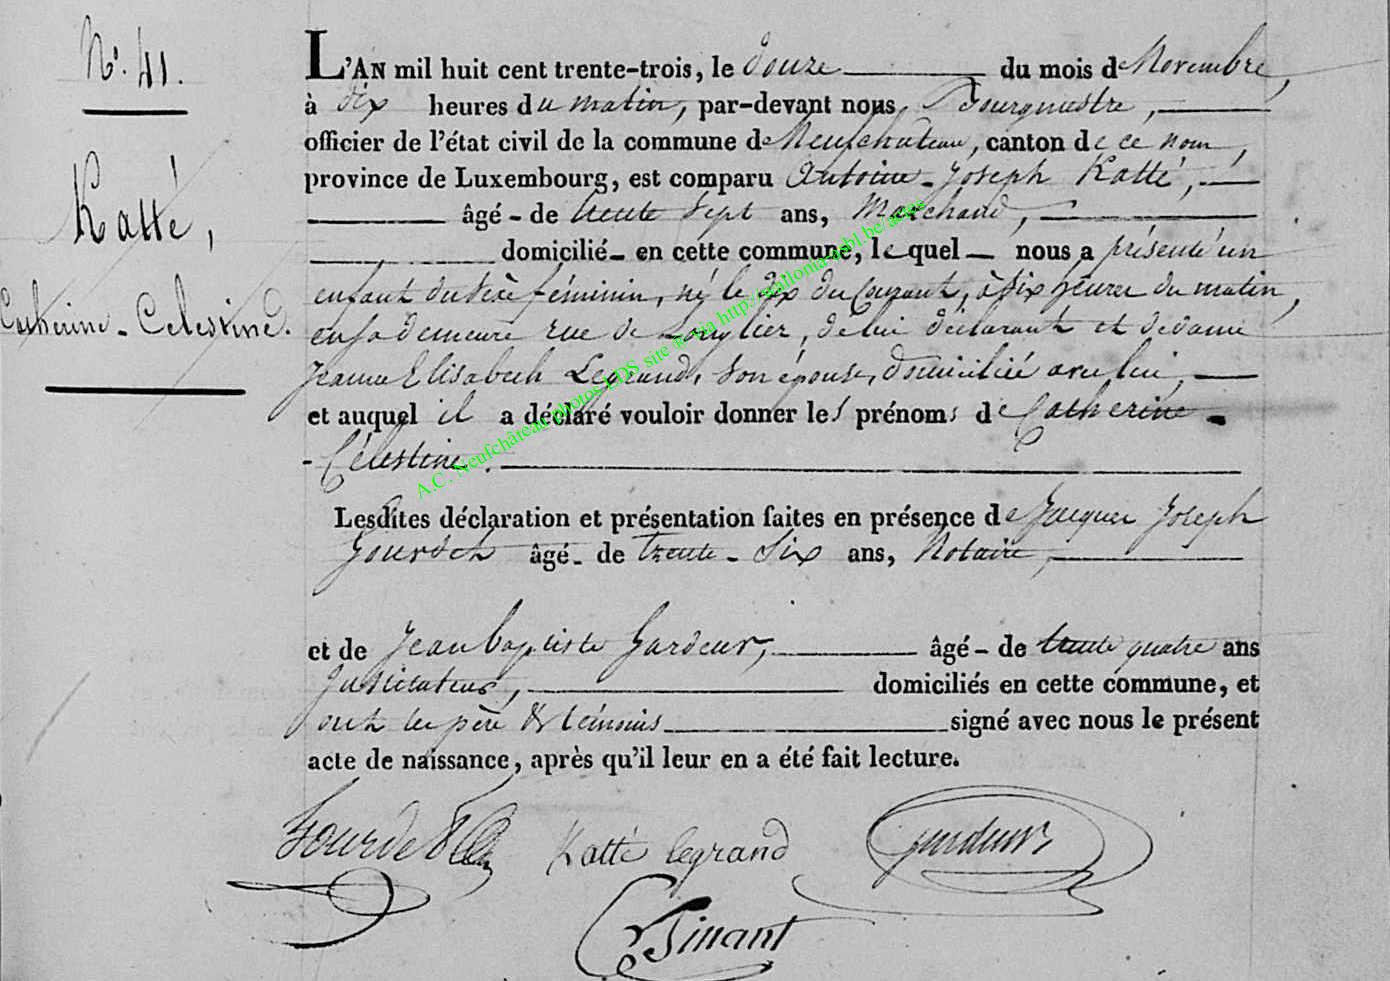 N°. 41.
Katté,
Catherine-Celestine.
L'AN mil huit cent trente-trois, le douze du mois de Novembre,
à dix heures du matin, par-devant nous Bourgmestre,
officier de l'état civil de la commune de Neufchateau, canton de ce nom,
province de Luxembourg, est comparu Antoine-Joseph Katté,
âgé - de trente Sept ans, Marchand,
domicilié - en cette commune, lequel - nous a présenté un
enfant du sexe féminin, né le dix du Courant, à six heures du matin,
en sa demeure rue de Longlier, de lui déclarant et de dame
Jeanne Elisabeth Legrand, son épouse, domiciliée avec lui,
et auquel il a déclaré vouloir donner les prénoms de Catherine -
- Célestine.
Lesdites déclaration et présentation faites en présence de Jacques Joseph
Gourdet âgé - de trente - Six ans, Notaire,
et de Jean baptiste Gardeur, âgé - de trente quatre ans
Instituteur, domiciliés en cette commune, et
ont les père & témoins signé avec nous le présent
acte de naissance, après qu'il leur en a été fait lecture.
Gourdet Katté legrand Gardeur
Dinant
A.C. Neufchâteau photos LDS site via http://wallonia-asbl.be/actes